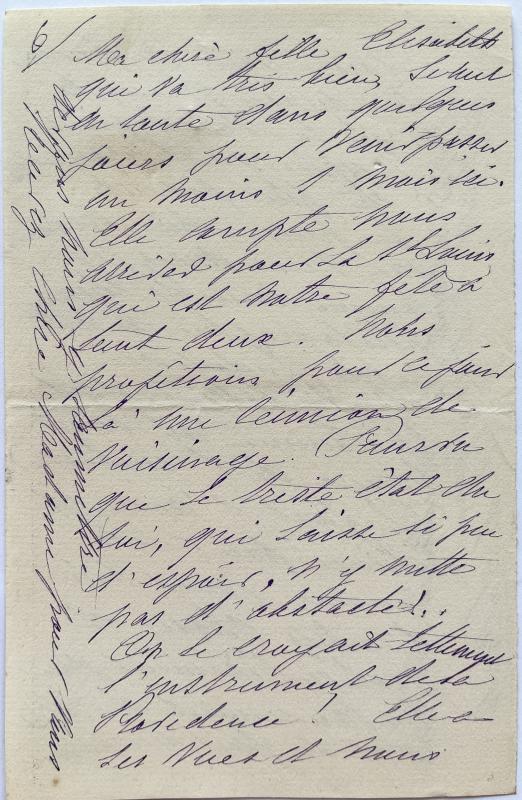 6/
Ma chère fille Elisabeth
qui va très bien, se met
en route dans quelques
jours pour venir passer
au moins 1 mois ici.
Elle compte nous
arriver pour la St Louis
qui est notre fête à
tout deux. Nous
profitions pour ce jour
là une réunion de
voisinage. Pourvu
que le triste état du
Roi, qui laisse si peu
d'espoir, n'y mette
pas d'obstacle!..
On le croyait tellement
l'instrument de la
Providence! Elle a
ses vues et nous
devons nous y soumettre
chère Madame pour vous